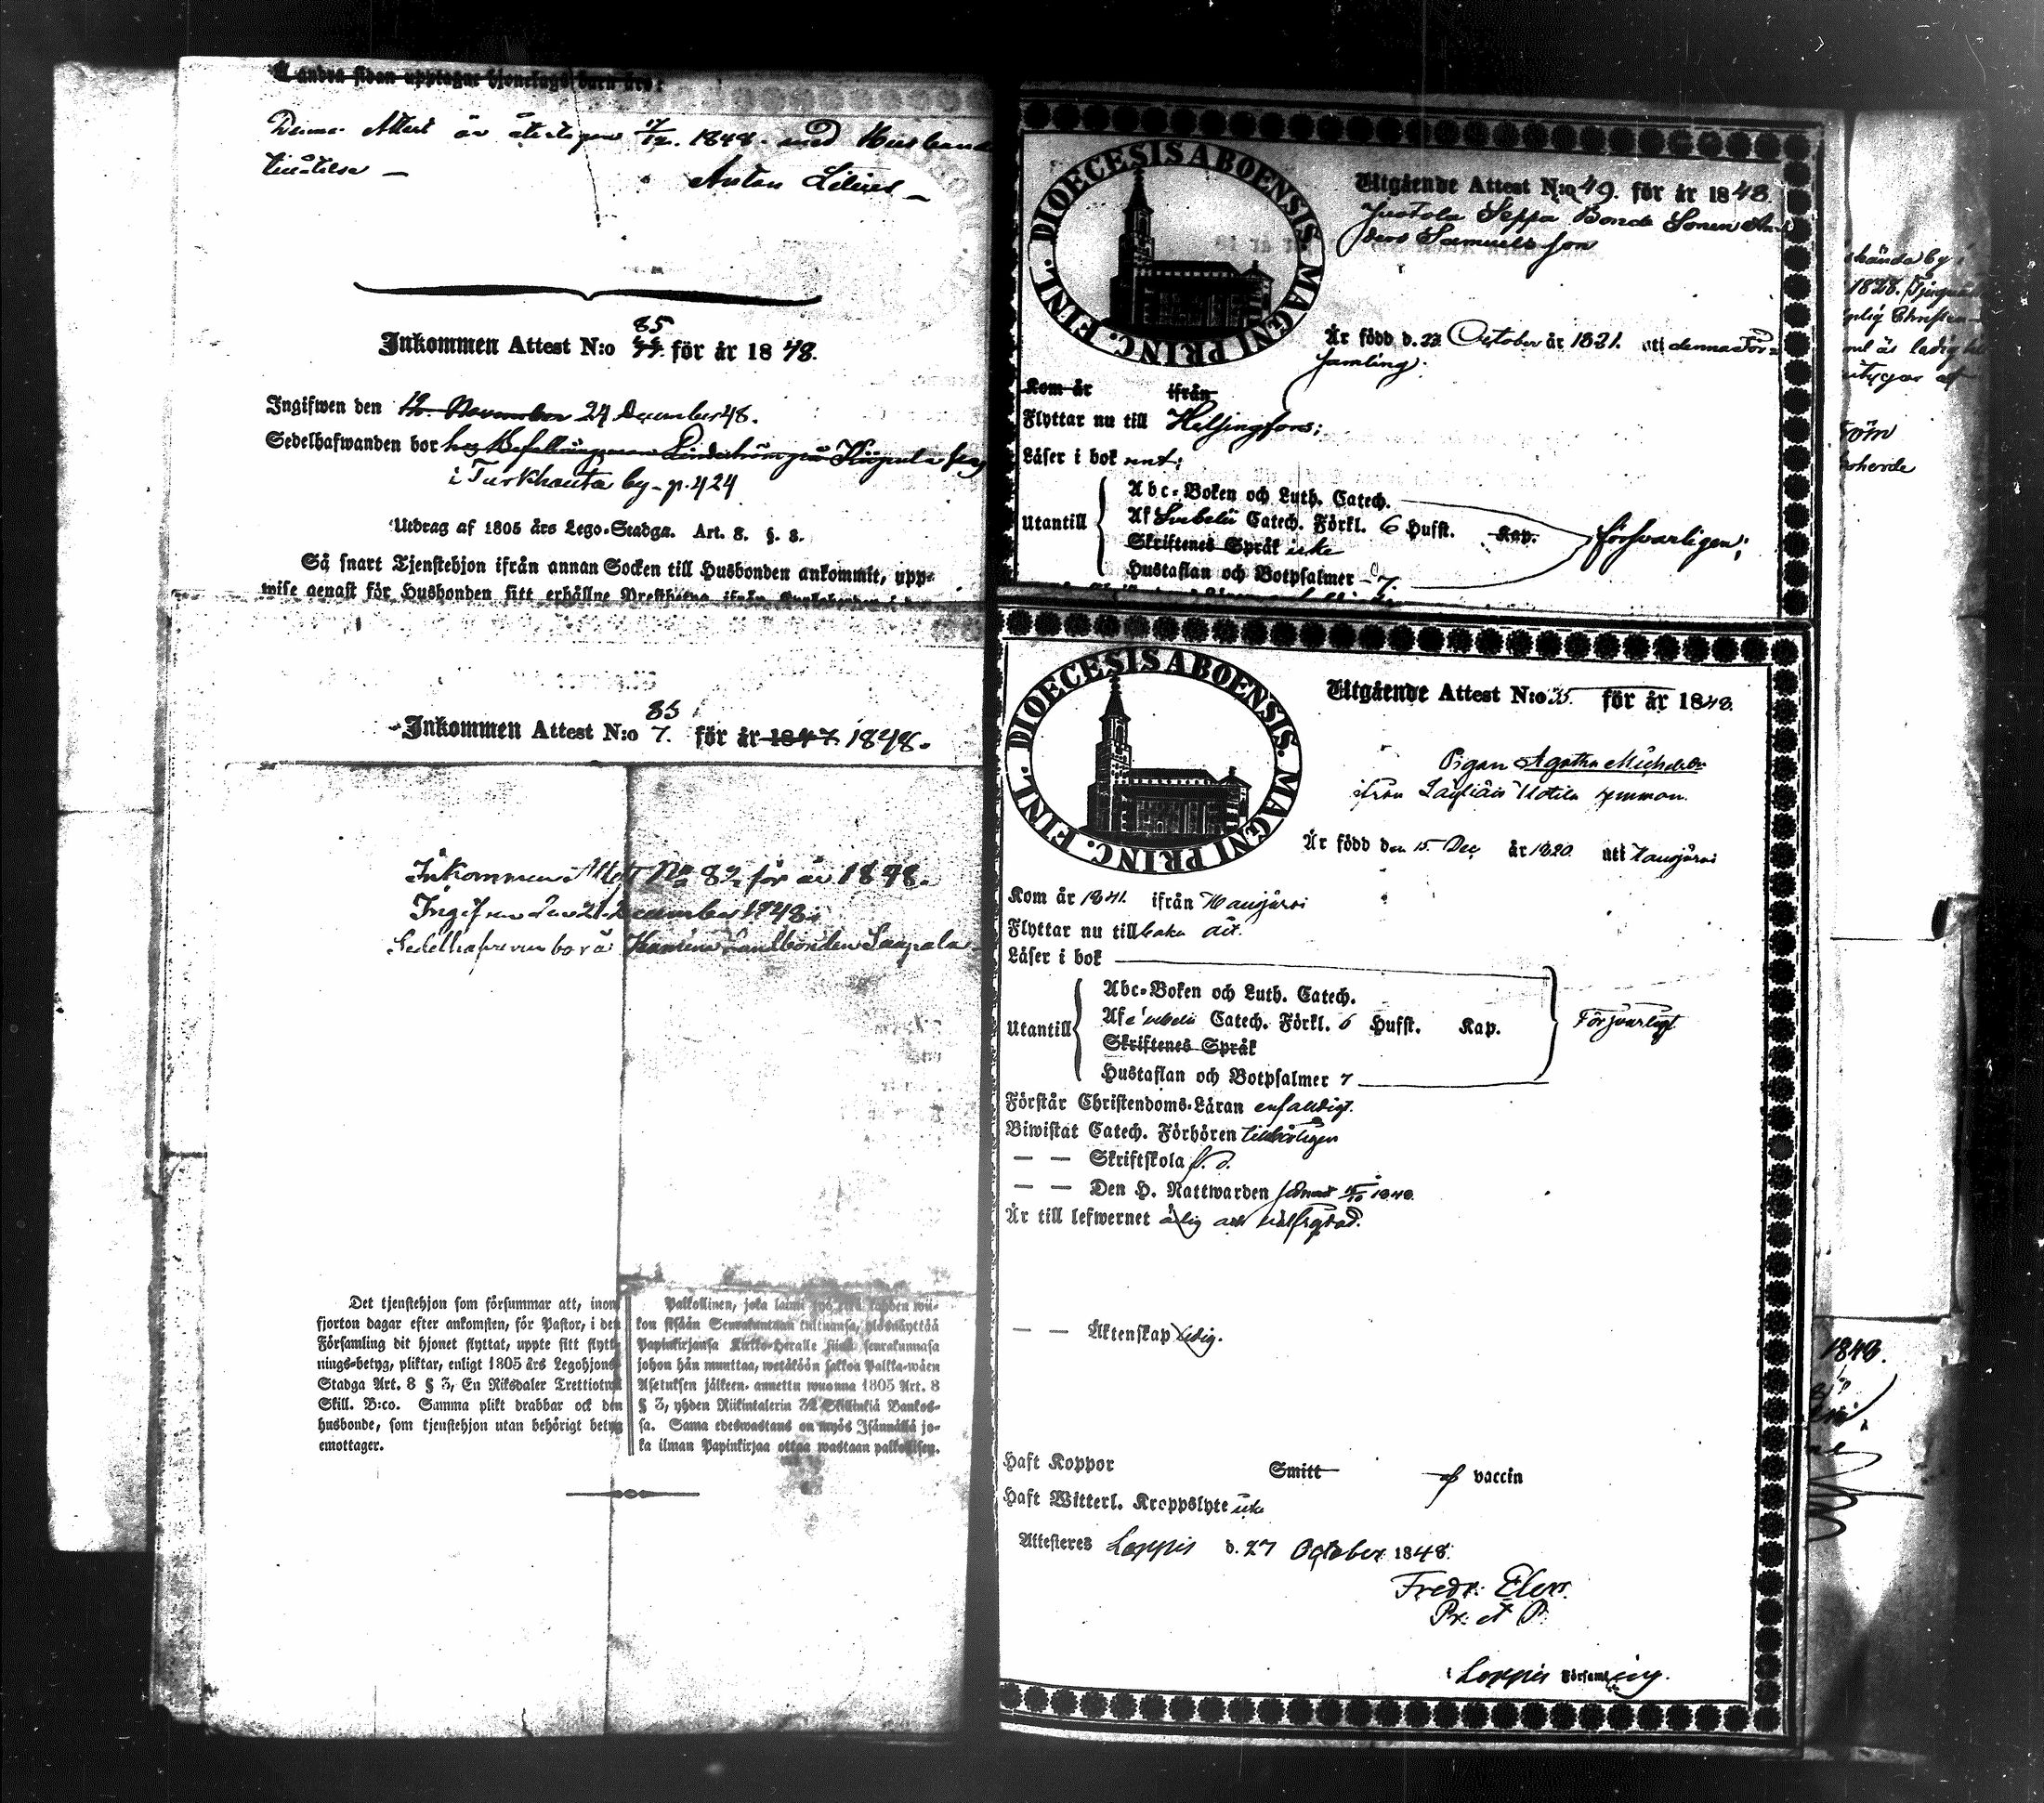 å andra sidan upptagne hjonelags barn äro:
Denna Attest är återtagen 17/12. 1848. med Husbondes
tillåtelse —
Anton Lilius —
Inkommen Attest N:o 85 för år 1848.
Ingifwen den 16. November 27 December 48.
Sedelhafwanden bor hos Befallningsman på hos
i Turkhauta by - p. 424
Utdrag af 1805 års Lego-Stadga. Art. 8. §. 3.
Så snart Tjenstehjon ifrån annan Socken till Husbonden ankommit, upp-
wise genast för Husbonden sitt erhållne Prestbetyg ifrån
Inkommen Attest N:o 7. 85 för år 1847 1848.
Inkommen Attest No 82 för år 1848.
Ingifven den 21 December 1848.
Sedelhafvaren bor å Landbonden
Det tjenstehjon som försummar att, inom
fjorton dagar efter ankomsten, för Pastor, i den
Församling dit hjonet flyttat, uppte sitt flytt-
nings-betyg, pliktar, enligt 1805 års Legohjons-
Stadga Art. 8 § 3, En Riksdaler Trettiotwå
Skill. B:co. Samma plikt drabbar ock den
husbonde, som tjenstehjon utan behörigt betyg
emottager.
Palkollinen, joka laimin lyö että kahden wii-
kon sisään Seurakuntaan tultuansa, ylösnäyttää
Papinkirjansa Kirkko-Herralle siinä seurakunnasa
johon hän muuttaa, wetäköön sakkoa Palkka-wäen
Asetuksen jälkeen, annettu wuonna 1805 Art. 8
§ 3, yhden Riikintalerin 32 Skillinkiä Bankos-
sa. Sama edeswastaus on myös Isännällä jo-
ka ilman Papinkirjaa ottaa wastaan palkollisen.
DIOECESIS ABOENSIS. MAGNI PRINC. FINL.
Utgående Attest N:o 49. för år 1848.
Seppä Bonde Sonen An-
ders Samuelsson
Är född d. 22 October år 1821. uti denna För-
samling.
Kom år ifrån
Flyttar nu till Helsingfors;
Läser i bok rent;
Utantill
Abc-Boken och Luth. Catech.
Af Svebelii Catech. Förkl. 6 Hufst. Kap.
Skriftenes Språk icke
Hustaflan och Botpsalmer - 7.
försvarligen;
DIOECESIS ABOENSIS. MAGNI PRINC. FINL.
Utgående Attest N:o 35. för år 1848.
Pigan Agatha Michelsdr
ifrån Läyliäis Uotila hemman.
Är född den 15. Dec. år 1820. uti Hausjärvi
Kom år 1841. ifrån Hausjärvi
Flyttar nu till baka dit.
Läser i bok
Utantill
Abc-Boken och Luth. Catech.
Af Svebelii Catech. Förkl. 6 Hufst. Kap.
Skriftenes Språk
Hustaflan och Botpsalmer 7
Försvarligt
Förstår Christendoms-Läran enfaldigt.
Biwistat Catech. Förhören tillbörligen
— — Skriftskola s. d.
— — Den H. Nattwarden senast 15/10 1848.
Är till lefwernet ärlig och välfrejdad.
— — Äktenskap ledig.
Haft Koppor Smitt af vaccin
Haft Witterl. Kroppslyte icke
Attesteres Loppis d. 27 October 1848.
Fredr. Elers.
Pr. et P.
i Loppis Församling.
by i
1828.
Christen-
är ledig
intygar af
1848.